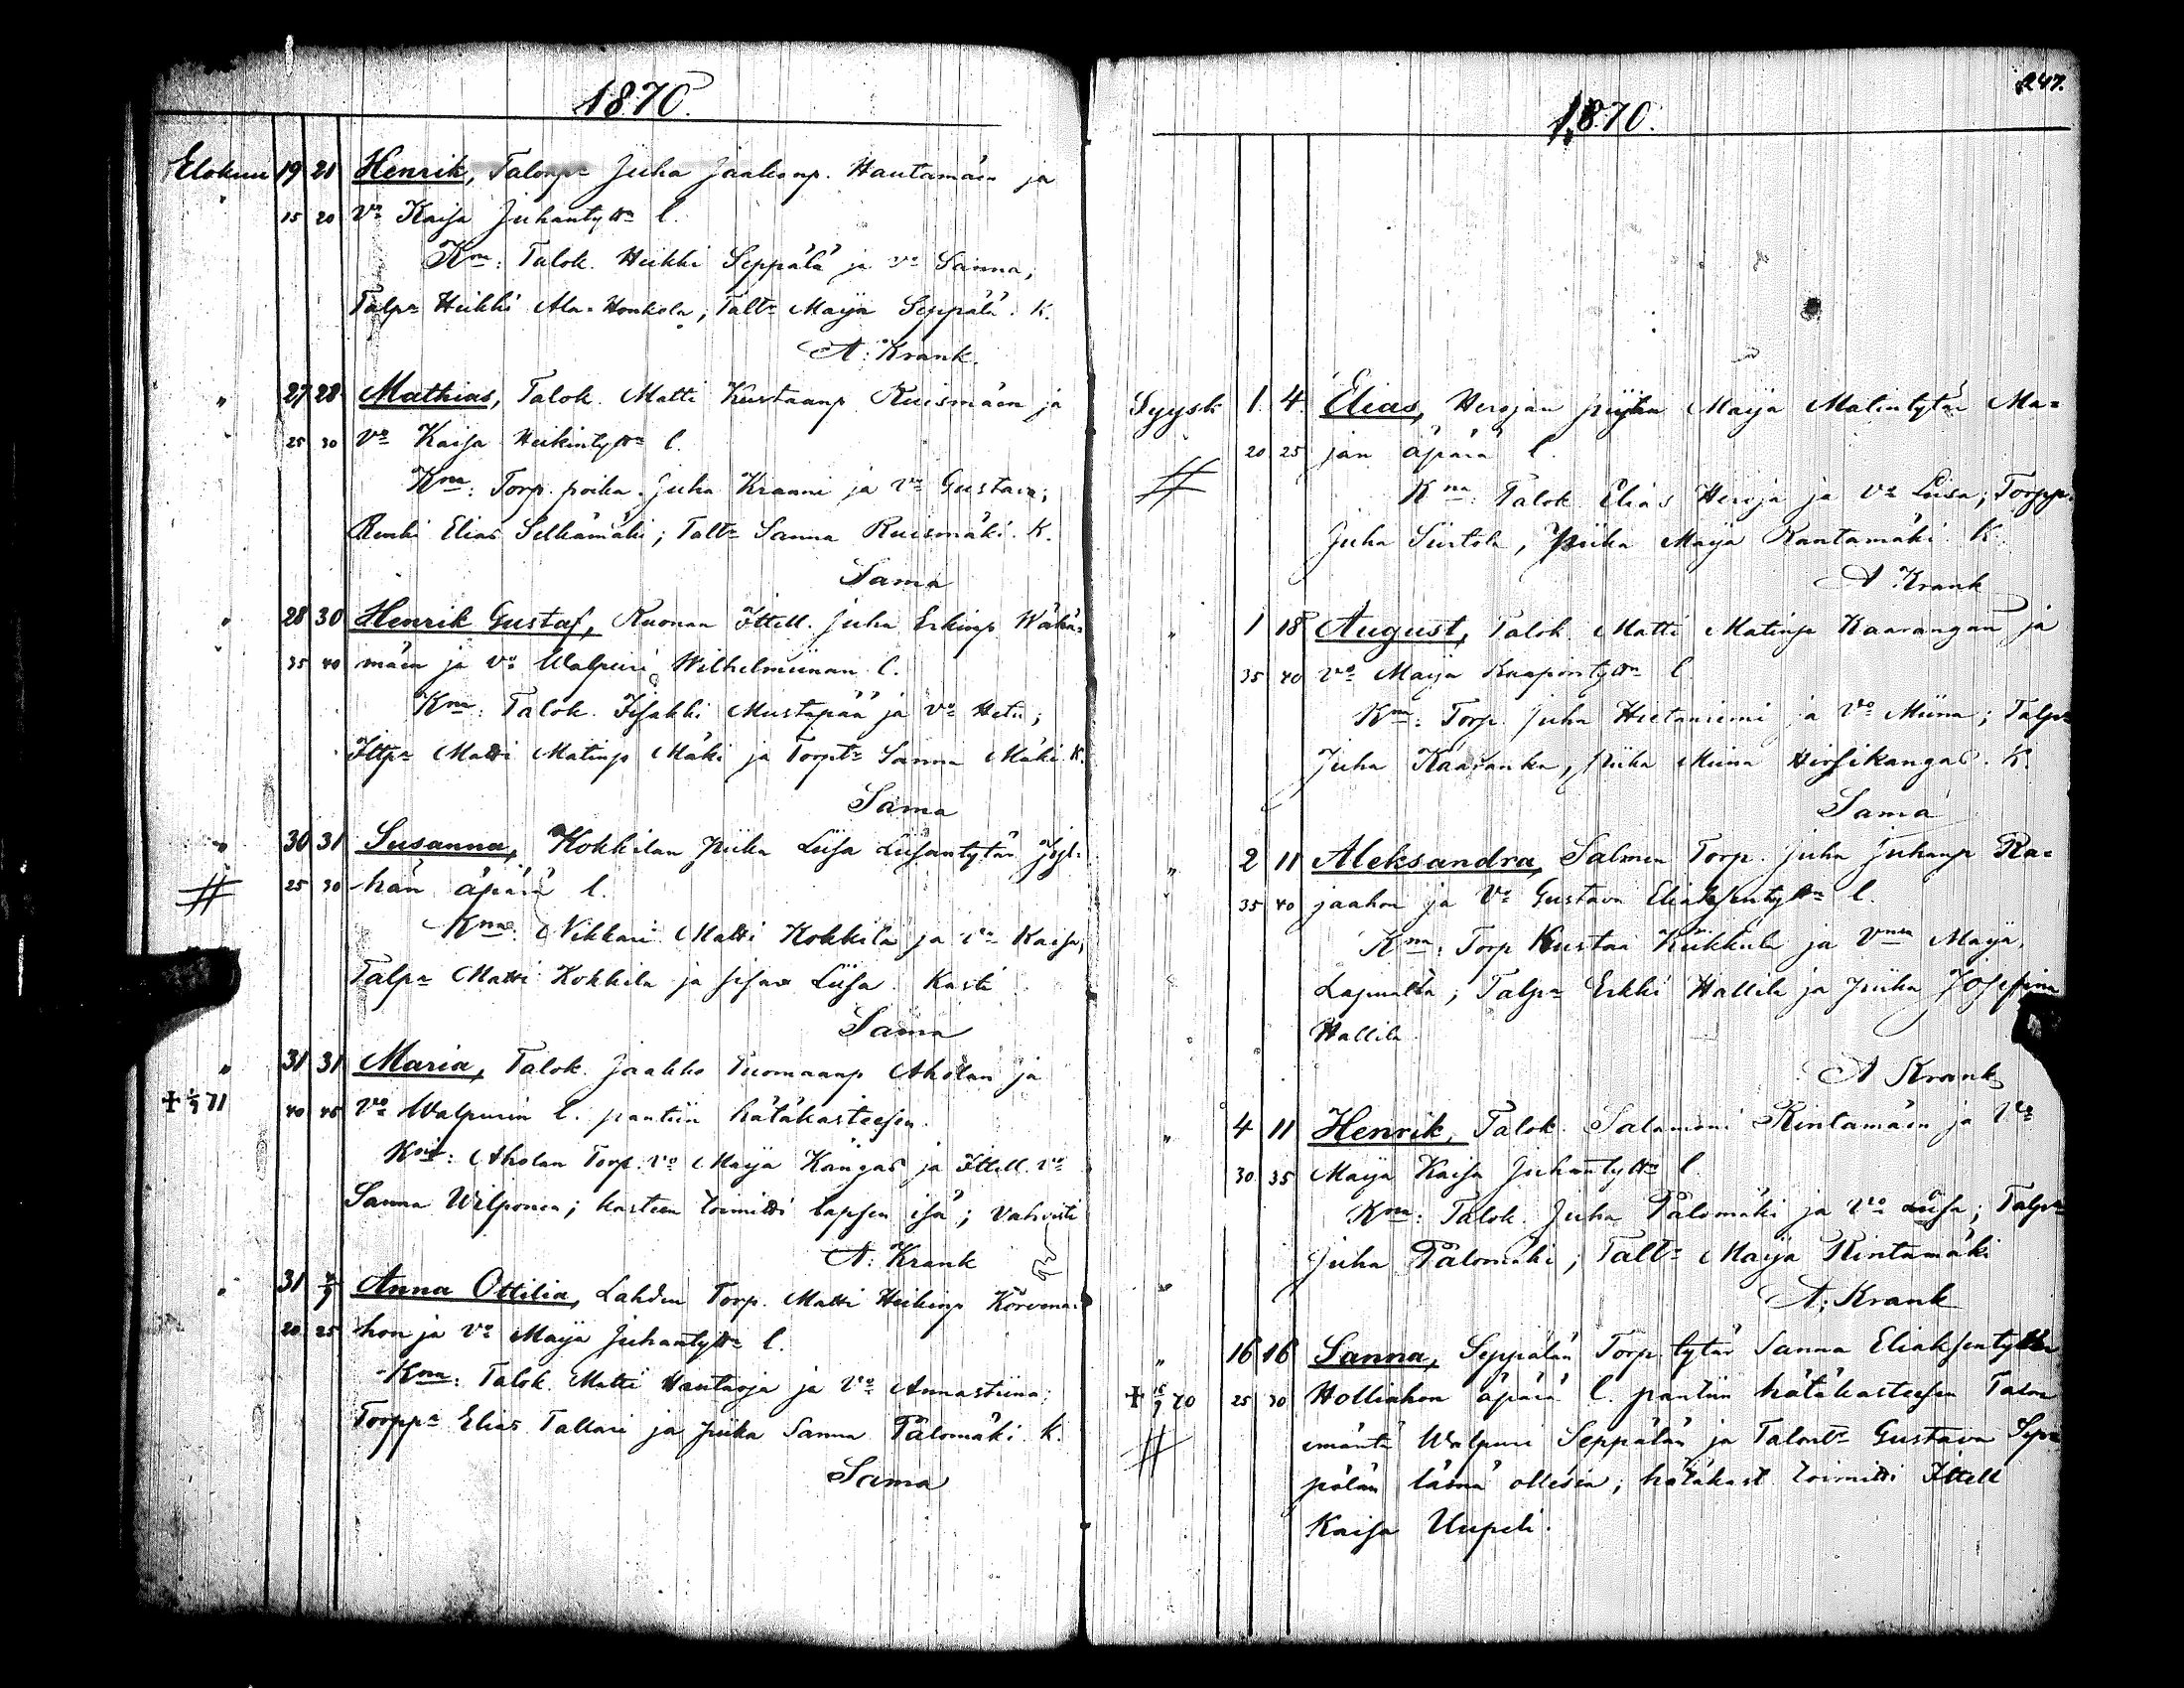 1870.
Elokuu 19 21 Henrik, Talonp:a Juha Jaakonp. Hautamäen ja
" 15 20 V:o Kaisa Juhantyttn l.
Km: Talok. Heikki Seppälä ja v:o Sanna,
Talp:a Heikki Ala-Honkola; Talt:r Maija Seppälä. K.
A: Krank.
" 27 28 Mathias, Talok. Matti Kustaanp Ruismäen ja
25 30 V:o Kaisa Heikintyttn l.
Kma: Torp. poika Juha Kraami ja v:o Gustava;
Renki Elias Selkämäki; Talt:r Sanna Ruismäki. K.
Sama
" 28 30 Henrik Gustaf, Ruonan Ittell. Juha Erkinp Käkä-
" 35 40 mäen ja v:o Walpuri Wilhelmiinan l.
Kma: Talok. Iisakki Mustapää ja v:o Hetu;
Ittp:a Matti Matinp Mäki ja Torpt:r Sanna Mäki. K.
Sama
" 30 31 Susanna, Kokkilan piika Liisa Liisantytär
# 25 30 hän äpärä l.
Kma: Nikkari Matti Kokkila ja v:o Kaisa,
Talp:a Matti Kokkila ja sisar Liisa. Kasti
Sama
" 31 31 Maria, Talok. Jaakko Tuomaanp Aholan ja
+ 1/9 71 40 45 V:o Walpurin l. pantiin hätäkasteesen.
Kmit: Aholan Torp. v:o Maija Kangas ja Ittell. v:o
Sanna Wilponen; kasteen toimitti lapsen isä; vahvisti
A: Krank
" 31 4/9 Anna Ottilia, Lahden Torp. Matti Heikinp Korvena-
20 25 hon ja V:o Maija Juhantyttn l.
Kma: Talok. Matti Hautaoja ja V:o Annastiina;
Torpp:a Elias Tallari ja piika Sanna Palomäki. K.
Sama
247.
1870.
Syysk 1. 4. Elias, Herojan piijan Maija Matintytär Ma-
20 25 jan äpärä l.
# Kma: Talok. Elias Heroja ja v:o Liisa; Torpp.
Juha Siirtola, piika Maija Rantamäki. K.
A Krank
" 1 18 August, Talok. Matti Matinp Kaarangan ja
35 40 V:o Maija Kaapontyttn l.
Kma: Torp. Juha Hietaniemi ja V:o Miina; Talp:a
Juha Kaaranka, piika Miina Hirsikangas. K.
Sama
" 2 11 Aleksandra, Salmen Torp. Juha Juhanp Ra-
" 35 40 jaahon ja V:o Gustava Eliaksentyttn l.
Kma: Torp Kustaa Kiikkula ja Vmn Maija,
; Talp:a Erkki Hallila ja piika Josefina
Hallila.
A Krank
" 4 11 Henrik, Talok. Salamoni Rintamäen ja V:o
30 35 Maija Kaisa Juhantyttn l.
Kma: Talok. Juha Palomäki ja v:o Liisa; Talp:a
Juha Palomäki; Talt:r Maija Rintamäki
A: Krank
" 16 16 Sanna, Seppälän Torp. tytär Sanna Eliaksentyttn
+ 16/9 70 25 30 Holliahon äpärä l. pantiin hätäkasteesen Talon
# emäntä Walpuri Seppälän ja Talont:r Gustava Sep-
pälän läsnä ollesia; hätäkast toimitti Ittell
Kaisa Uupeli.